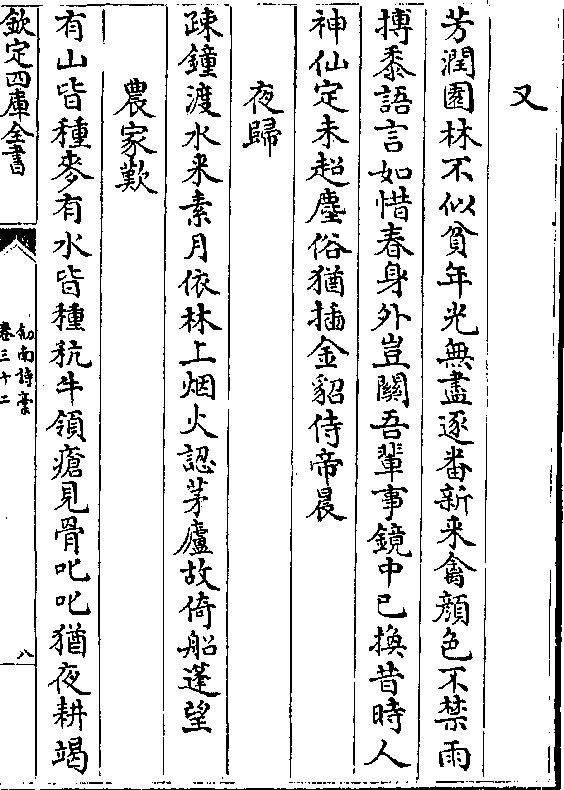 又
芳潤園林不似貧年光無盡逐畨新来禽顔色不禁雨
摶黍語言如惜春身外豈關吾輩事鏡中已換昔時人
神仙定未超塵俗猶插金貂侍帝晨
夜歸
疎鐘渡水来素月依林上烟火認茅廬故倚船蓬望
農家歎
有山皆種麥有水皆種秔牛領瘡見骨叱叱猶夜耕竭
欽定四庫全書
劍南詩稾
卷三十二
八